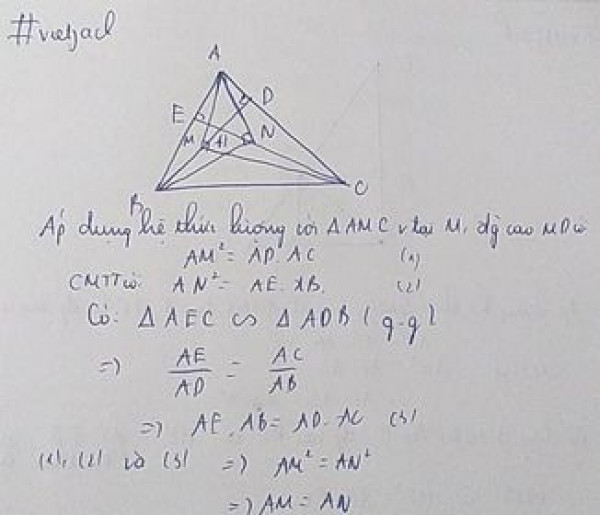 #vietjack
A
D
E
N
M
H
B
C
Áp dụng hệ thức lượng với ΔAMC v tại M, đg cao MD có
AM² = AD. AC (1)
CMTT có: AN² = AE. AB. (2)
Có: ΔAEC ∽ ΔADB (g-g)
=> AE/AD = AC/AB
=> AE. AB = AD. AC (3)
(1), (2) và (3) => AM² = AN²
=> AM = AN